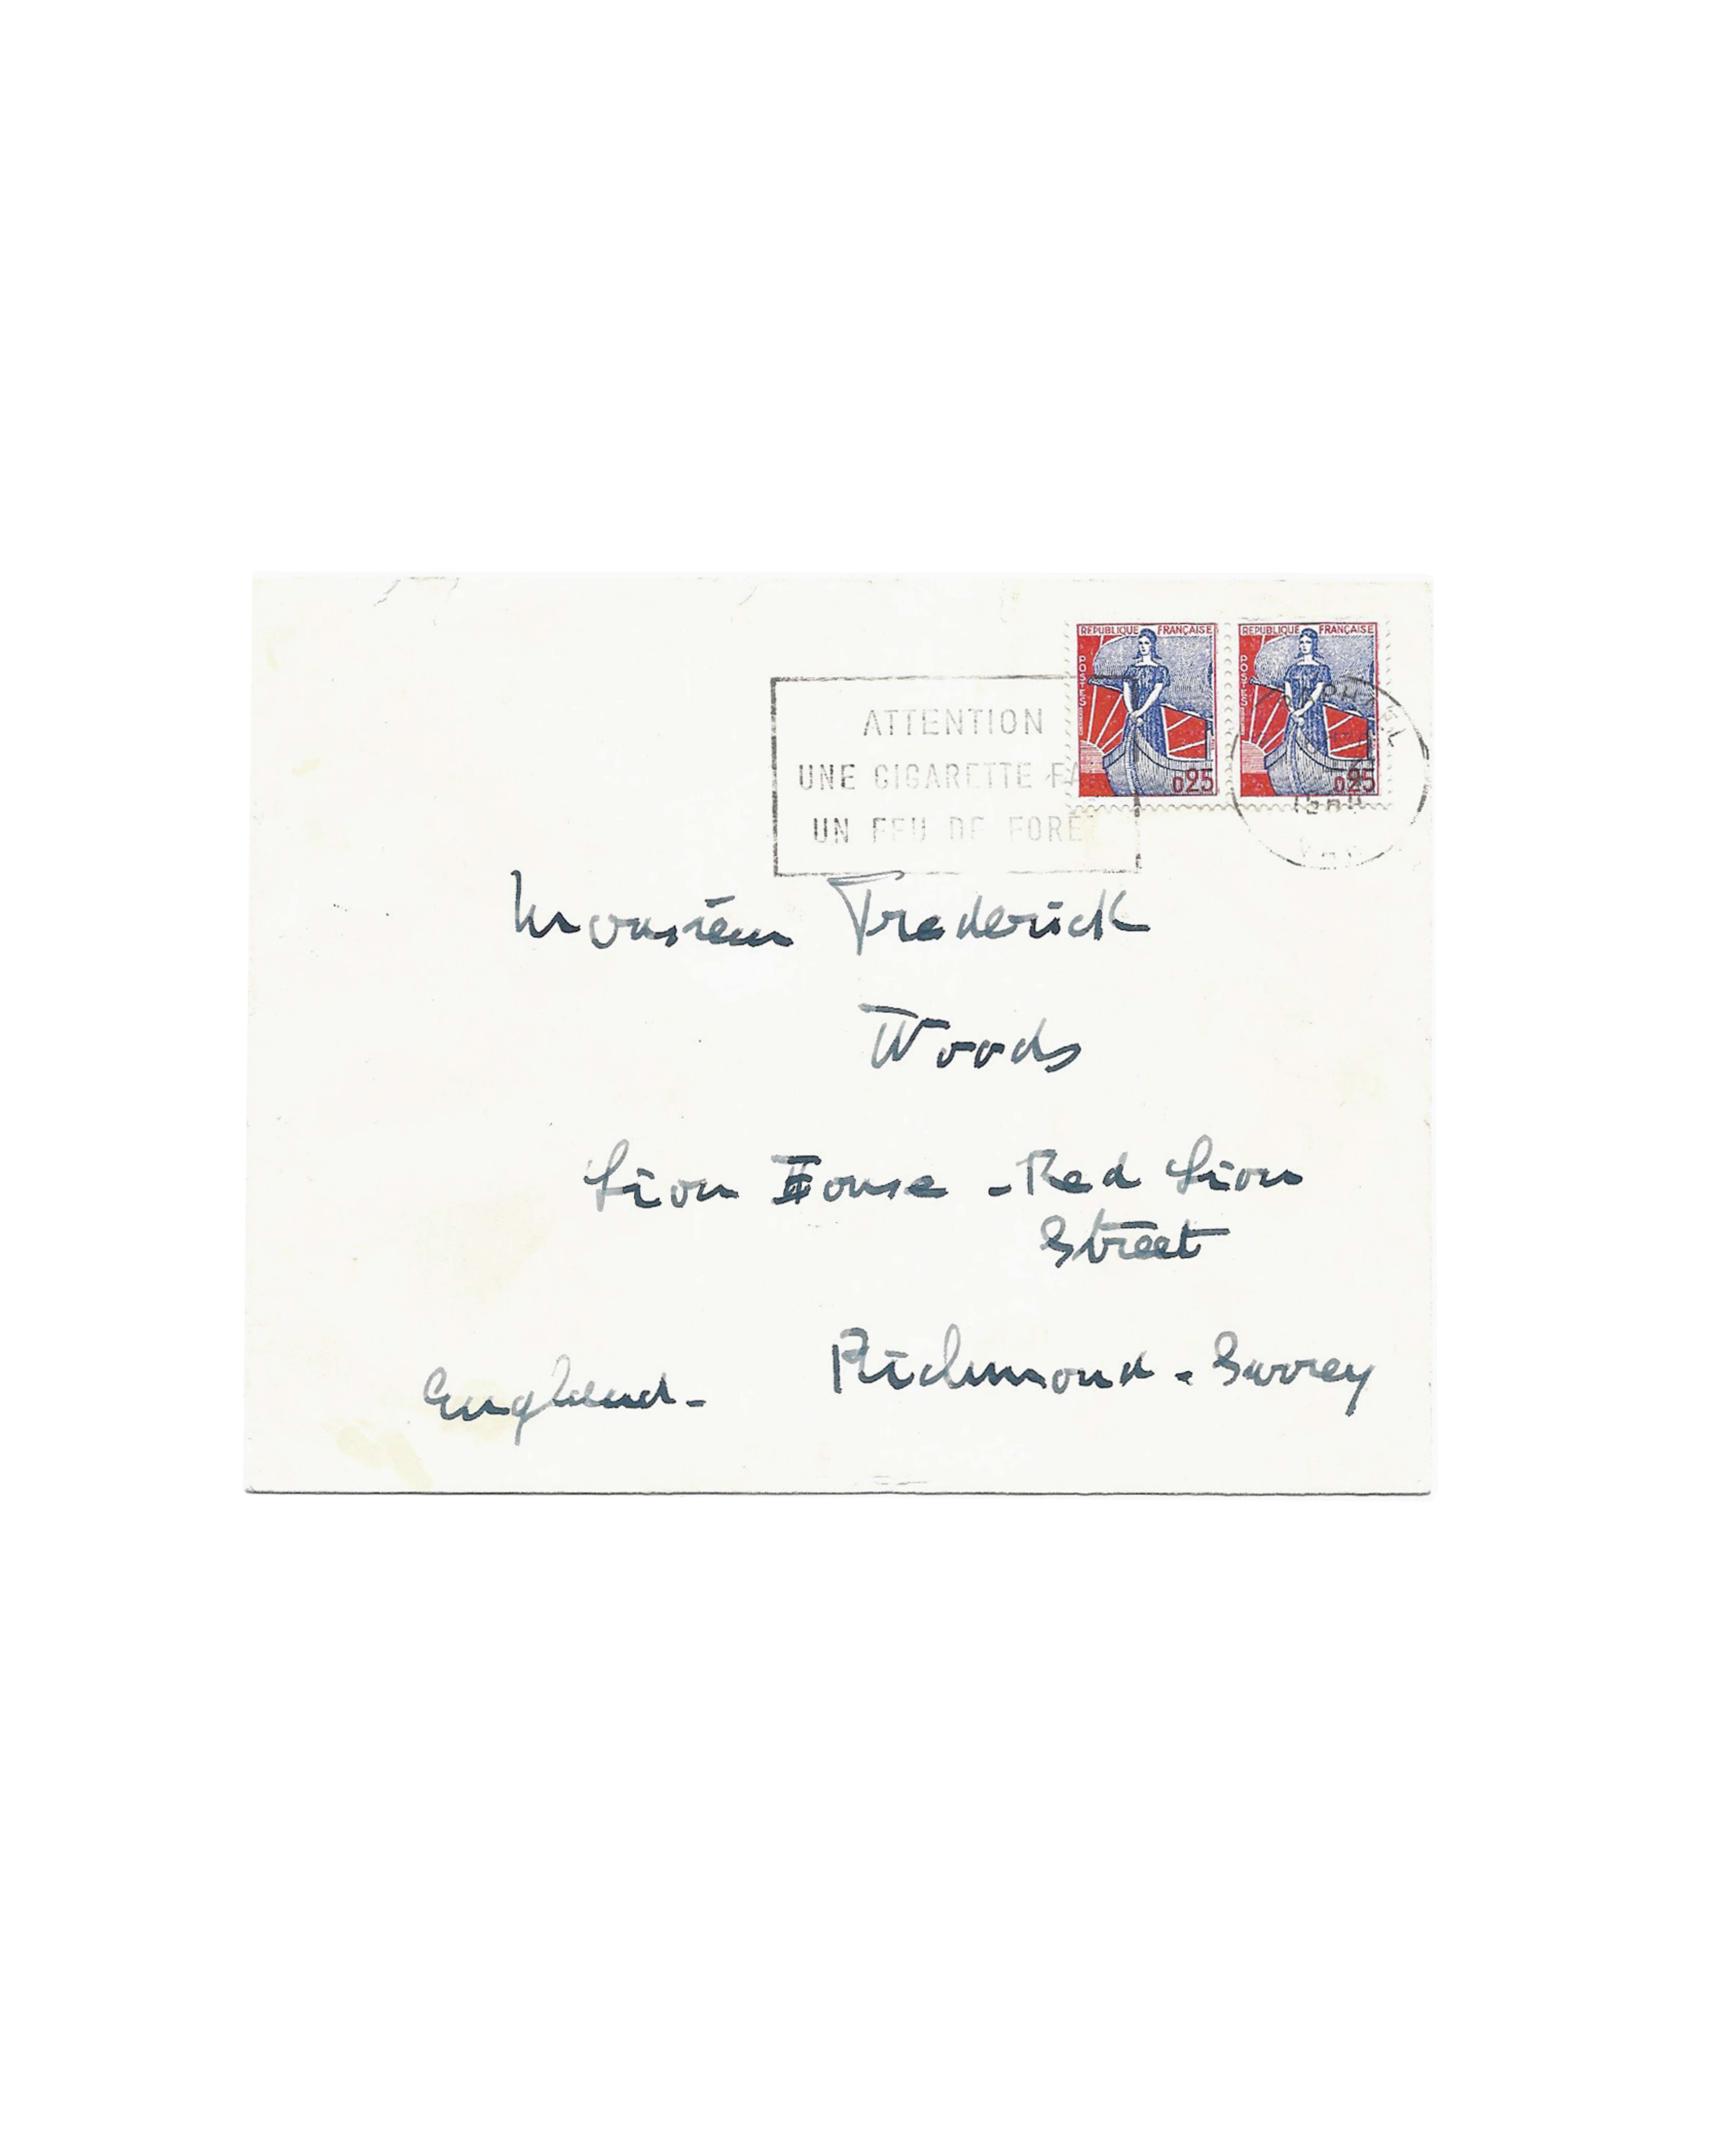 REPUBLIQUE FRANÇAISE
POSTES
0.25
REPUBLIQUE FRANÇAISE
POSTES
0.25
ATTENTION
UNE CIGARETTE FA
UN FEU DE FORÊ
Monsieur Frederick
Woods
Lion House - Red Lion
Street
Richmond - Surrey
England -